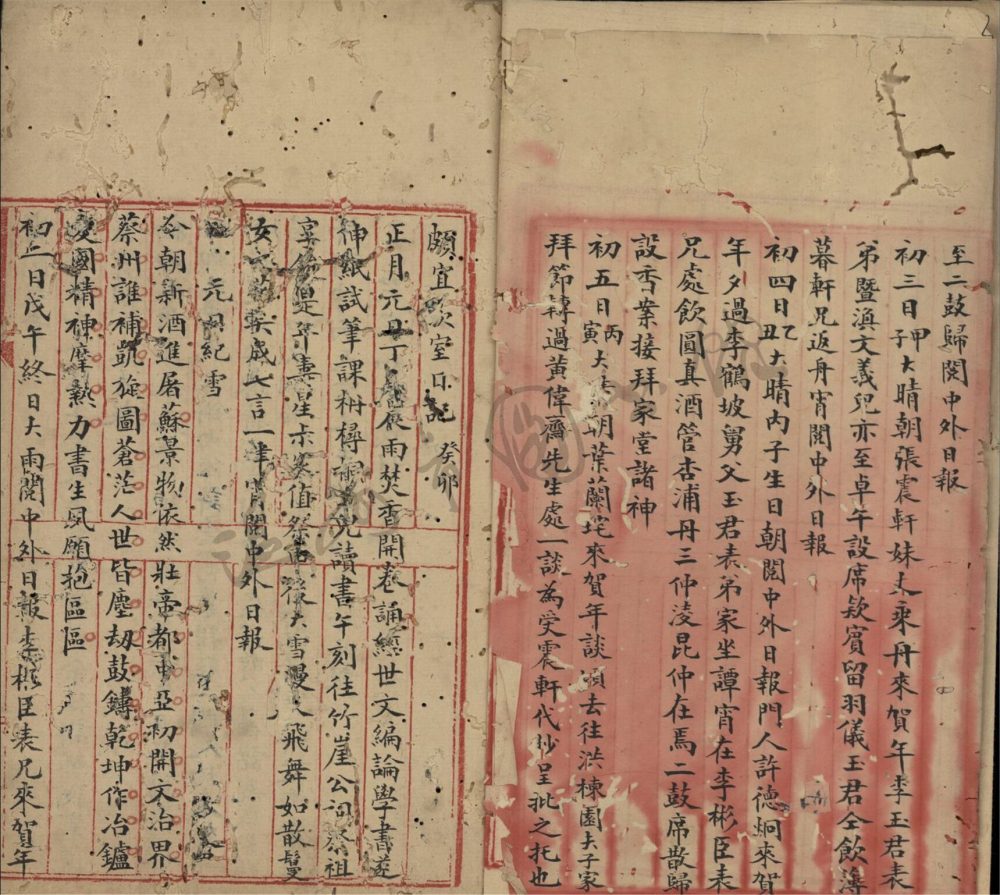 至二鼓歸閱中外日報
初三日甲子大晴朝張震軒妹夫乘舟來賀年李玉君表
弟暨滇文義兒亦至卓午設席欵賓留羽儀玉君仝飲薄
暮軒兄返舟宵閱中外日報
初四日乙丑大晴內子生日朝閱中外日報門人許德炯來賀
年夕過李鶴坡舅父玉君表弟家坐譚宵在李彬臣表
兄處飲圓真酒管杏浦丹三仲淩昆仲在焉二鼓席散歸
設香案接拜家堂諸神
初五日丙寅大朝葉蘭垞來賀年談頃去往洪棟園夫子家
拜節轉過黃偉齋先生處一談為受震軒代抄呈批之托也
頗宜茨室日記 癸卯
正月元旦丁辰雨焚香開卷誦經世文編論學書遂
伸紙試筆課栴樨兒讀書午刻往竹崖公祠祭祖
宴是年壽星值祭大雪漫天飛舞如散鬘
女歲七言一律宵閱中外日報
元日紀雪
今朝新酒進屠蘇景物依然壯帝都東亞初開文治界
蔡州誰補凱旋圖蒼茫人世皆塵劫鼓鑄乾坤作冶鑪
愛國精神摩熱力書生夙願抱區區
初二日戊午終日大雨閱中外日報李彬臣表兄來賀年